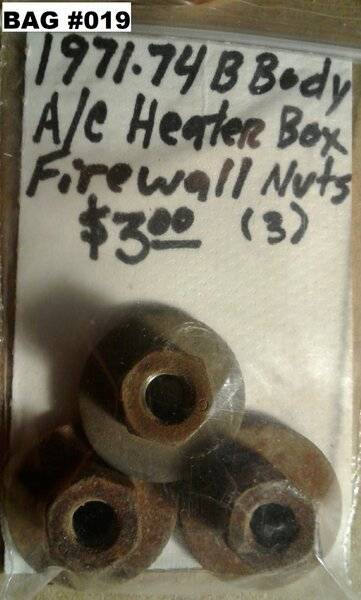 BAG #019
1971-74 B Body
A/C Heater Box
Firewall Nuts
$3.00 (3)